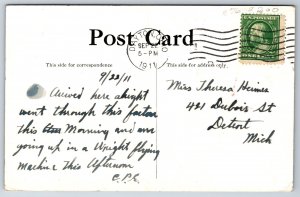 Post Card
DAYTON
SEP 22
6-PM
1911
This side for correspondence.
This side for address only.
9/22/11
Arived here alright
went through this factory
this Morning and am
going up in a Wright flying
Machine this Afternoon
C.P.E.
Miss Theresa Heimes
421 Dubois St
Detroit
Mich